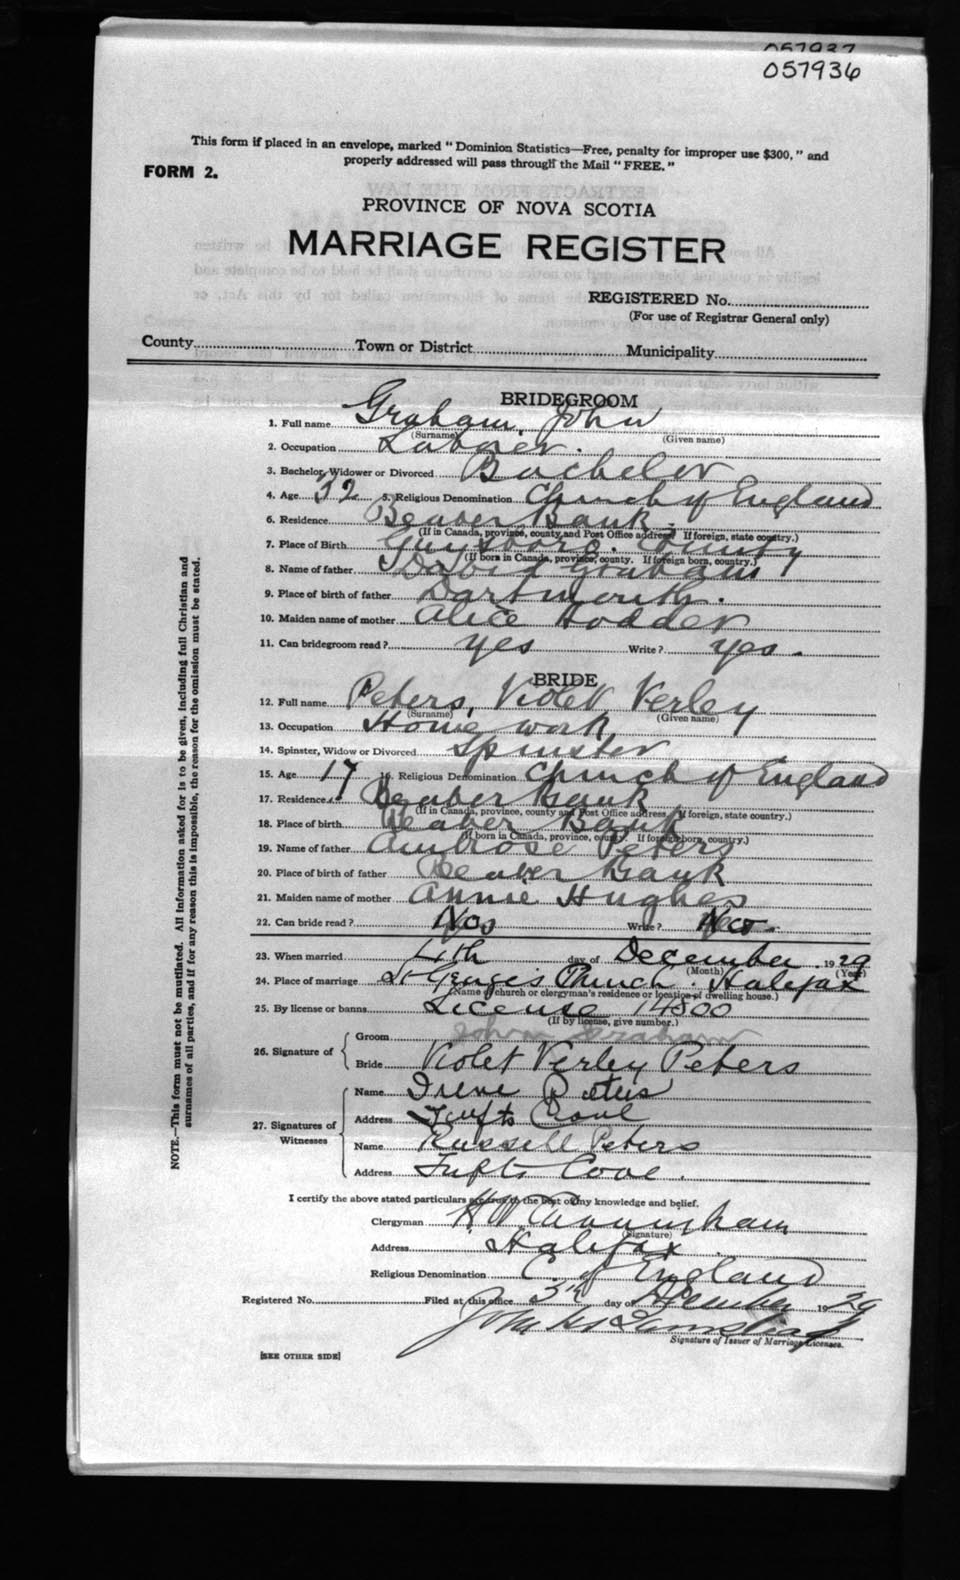 057937
057936
This form if placed in an envelope, marked "Dominion Statistics—Free, penalty for improper use $300," and
properly addressed will pass through the Mail "FREE."
FORM 2.
PROVINCE OF NOVA SCOTIA
MARRIAGE REGISTER
REGISTERED No.
(For use of Registrar General only)
County Town or District Municipality
BRIDEGROOM
1. Full name Graham, John
(Surname) (Given name)
2. Occupation Laborer.
3. Bachelor, Widower or Divorced Bachelor
4. Age 32 5. Religious Denomination Church of England
6. Residence Beaver Bank
(If in Canada, province, county and Post Office address. If foreign, state country.)
7. Place of Birth Guysboro. County
(If born in Canada, province, county. If foreign born, country.)
8. Name of father David Graham
9. Place of birth of father Dartmouth.
10. Maiden name of mother Alice Hodder
11. Can bridegroom read? yes Write? yes.
BRIDE
12. Full name Peters, Violet Verley
(Surname) (Given name)
13. Occupation Home work
14. Spinster, Widow or Divorced Spinster
15. Age 17 16. Religious Denomination Church of England
17. Residence Beaver Bank
(If in Canada, province, county and Post Office address. If foreign, state country.)
18. Place of birth Beaver Bank
(If born in Canada, province, county. If foreign born, country.)
19. Name of father Ambrose Peters
20. Place of birth of father Beaver Bank
21. Maiden name of mother Annie Hughes
22. Can bride read? Write?
23. When married 4th day of December 1929
(Month) (Year)
24. Place of marriage St George's Church. Halifax
(Name of church or clergyman's residence or location of dwelling house.)
25. By license or banns License 14800
(If by license, give number.)
26. Signature of Groom John Graham
Bride Violet Verley Peters
27. Signatures of Witnesses
Name Irene Peters
Address Tufts Cove
Name Russell Peters
Address Tufts Cove.
I certify the above stated particulars are true to the best of my knowledge and belief.
Clergyman H W Cunningham
(Signature)
Address Halifax.
Religious Denomination C of England
Registered No. Filed at this office 5th day of December 1929
John
Signature of Issuer of Marriage Licenses.
[SEE OTHER SIDE]
NOTE.—This form must not be mutilated. All information asked for is to be given, including full Christian and
surnames of all parties, and if for any reason this is impossible, the reason for the omission must be stated.